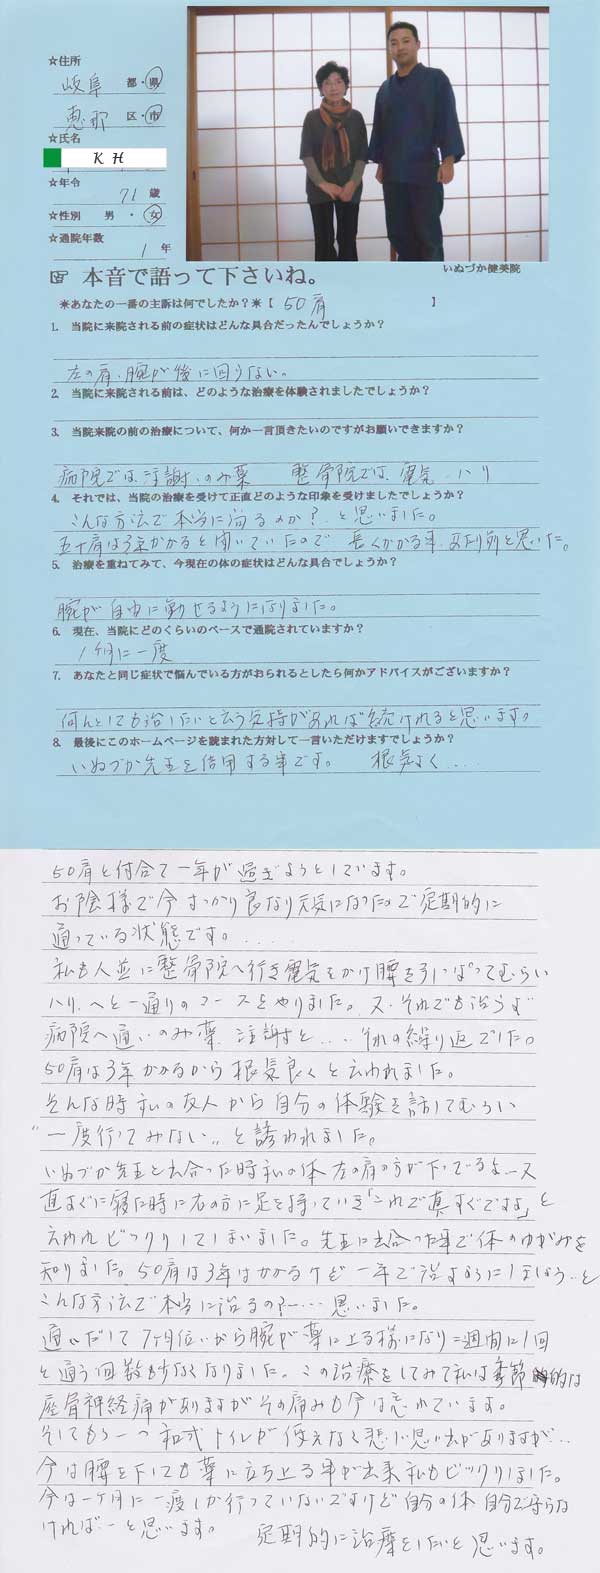 ☆住所
岐阜 都・県
恵那 区・市
☆氏名
K H
☆年令
71 歳
☆性別 男・女
☆通院年数
1 年
いぬづか健美院
☞ 本音で語って下さいね。
＊あなたの一番の主訴は何でしたか？＊【 50肩 】
1. 当院に来院される前の症状はどんな具合だったんでしょうか？
左の肩、腕が後に回らない。
2. 当院に来院される前は、どのような治療を体験されましたでしょうか？
3. 当院来院の前の治療について、何か一言頂きたいのですがお願いできますか？
病院では、注謝、のみ薬 整骨院では、電気、ハリ
4. それでは、当院の治療を受けて正直どのような印象を受けましたでしょうか？
こんな方法で本当に治るのか？と思いました。
五十肩は3年かかると聞いていたので 長くかかる事、当たり前と思いた。
5. 治療を重ねてみて、今現在の体の症状はどんな具合でしょうか？
腕が自由に動せるようになりました。
6. 現在、当院にどのくらいのペースで通院されていますか？
1ヶ月に一度
7. あなたと同じ症状で悩んでいる方がおられるとしたら何かアドバイスがございますか？
何んとしても治したいと云う気持があれば続けれると思います。
8. 最後にこのホームページを読まれた方対して一言いただけますでしょうか？
いぬづか先生を信用する事です。 根気よく....
50肩と付合て一年が過ぎようとしています。
お陰様で今すっかり良なり元気になったので定期的に
通っている状態です。....
私も人並に整骨院へ行き電気をかけ腰を引っぱってもらい
ハリ、へと一通りのコースをやりました。又、それでも治らず
病院へ通い、のみ薬、注謝と....それの繰り返でした。
50肩は3年かかるから根気良くと云われました。
そんな時私の友人から自分の体験を話してもらい
"一度行ってみない"と誘われました。
いぬづか先生と出合った時私の体 左の肩の方が下っているよ…又
直すぐに寝た時に右の方に足を持っていき「これで真すぐですよ」と
云われビックリしてしまいました。先生に出合った事で体のゆがみを
知りました。50肩は3年はかかるけど一年で治ように しましょう…と
こんな方法で本当に治るの?-…思いました。
通いだして7ヶ月位いから腕が楽に上る様になり二週間に1回
と通う回数も少なくなりました。この治療をしてみて私は季節的は
座骨神経痛がありますがその痛みも今は忘れています。
そしてもう一つ和式トイレが使えなく悲い思い出がありますが…
今は腰を下しても楽に立ち上る事が出来私もビックリしました。
今は一ヶ月に一度しか行っていないですけど自分の体 自分で守らな
ければ…と思います。 定期的に治療をしたいと思います。